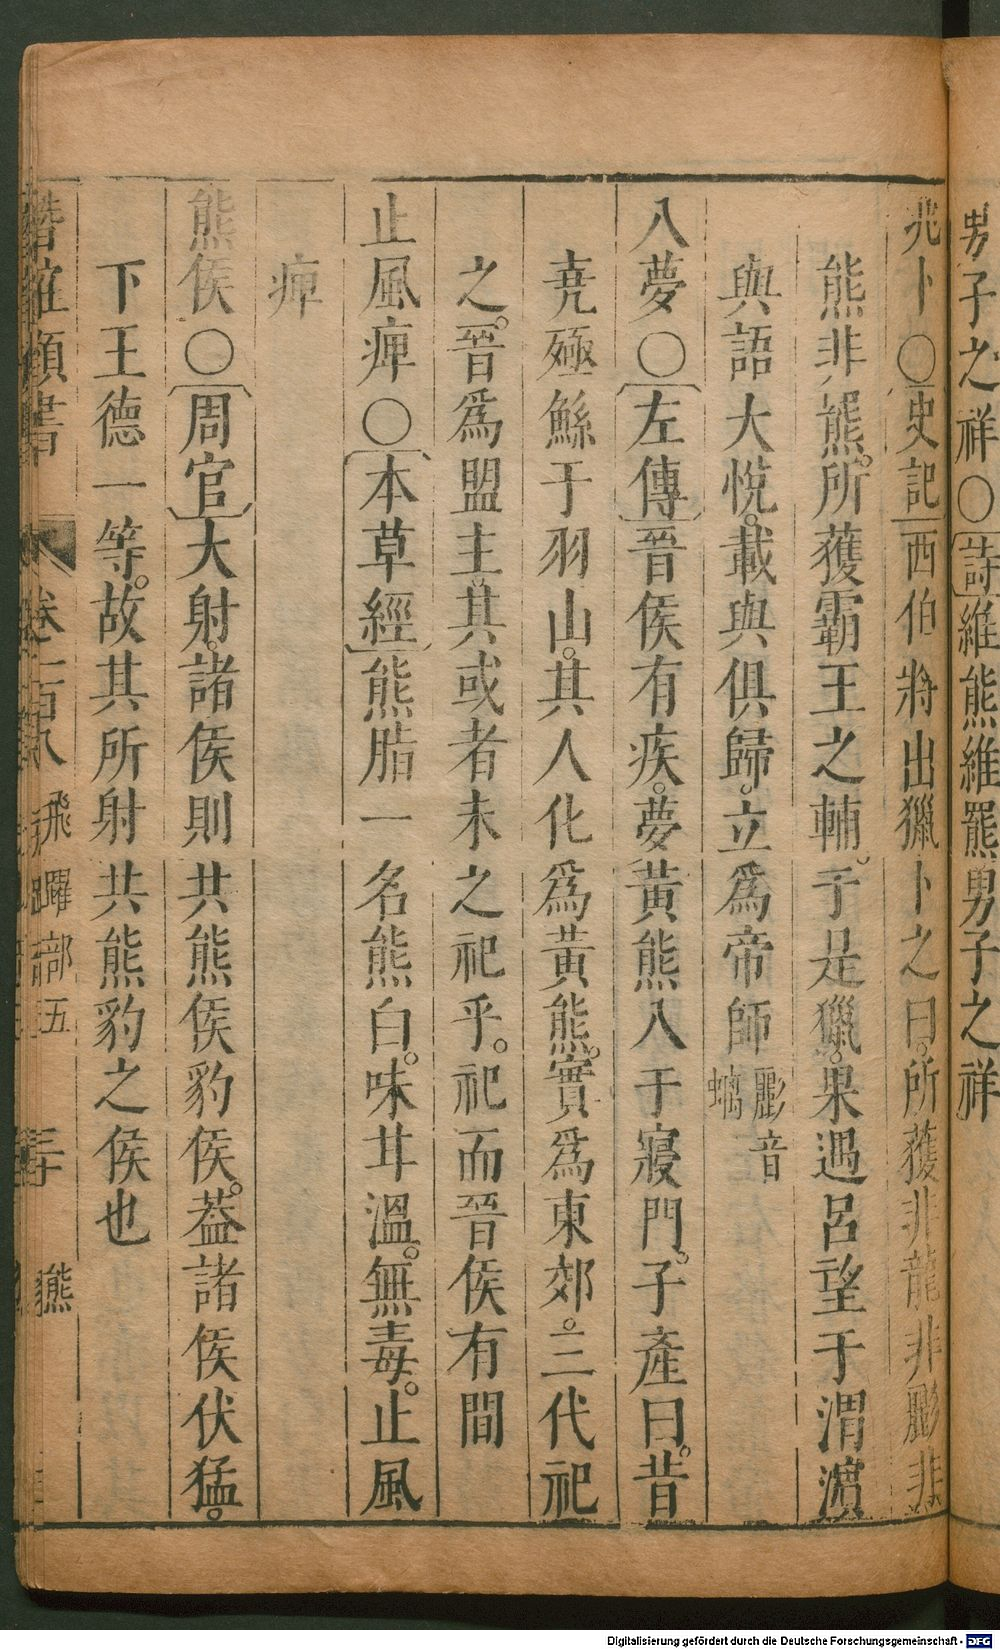 男子之祥〇〔詩〕維熊維羆男子之祥
兆卜〇〔史記〕西伯將出獵卜之曰。所獲非龍非彲非
熊非羆。所獲霸王之輔。于是獵。果遇呂望于渭濱
與語大悅。載與俱歸。立爲帝師 彲音螭
入夢〇〔左傳〕晉侯有疾。夢黃熊入于寢門。子產曰。昔
堯殛鯀于羽山。其人化爲黃熊。實爲東郊。三代祀
之。晉爲盟主。其或者未之祀乎。祀而晉侯有間
止風痺〇〔本草經〕熊脂一名熊白。味甘溫。無毒。止風
痺
熊侯〇〔周官〕大射。諸侯則共熊侯豹侯。葢諸侯伏猛。
下王德一等。故其所射共熊豹之侯也
潛確類書 卷一百八 飛躍部五 三十 熊
Digitalisierung gefördert durch die Deutsche Forschungsgemeinschaft - DFG